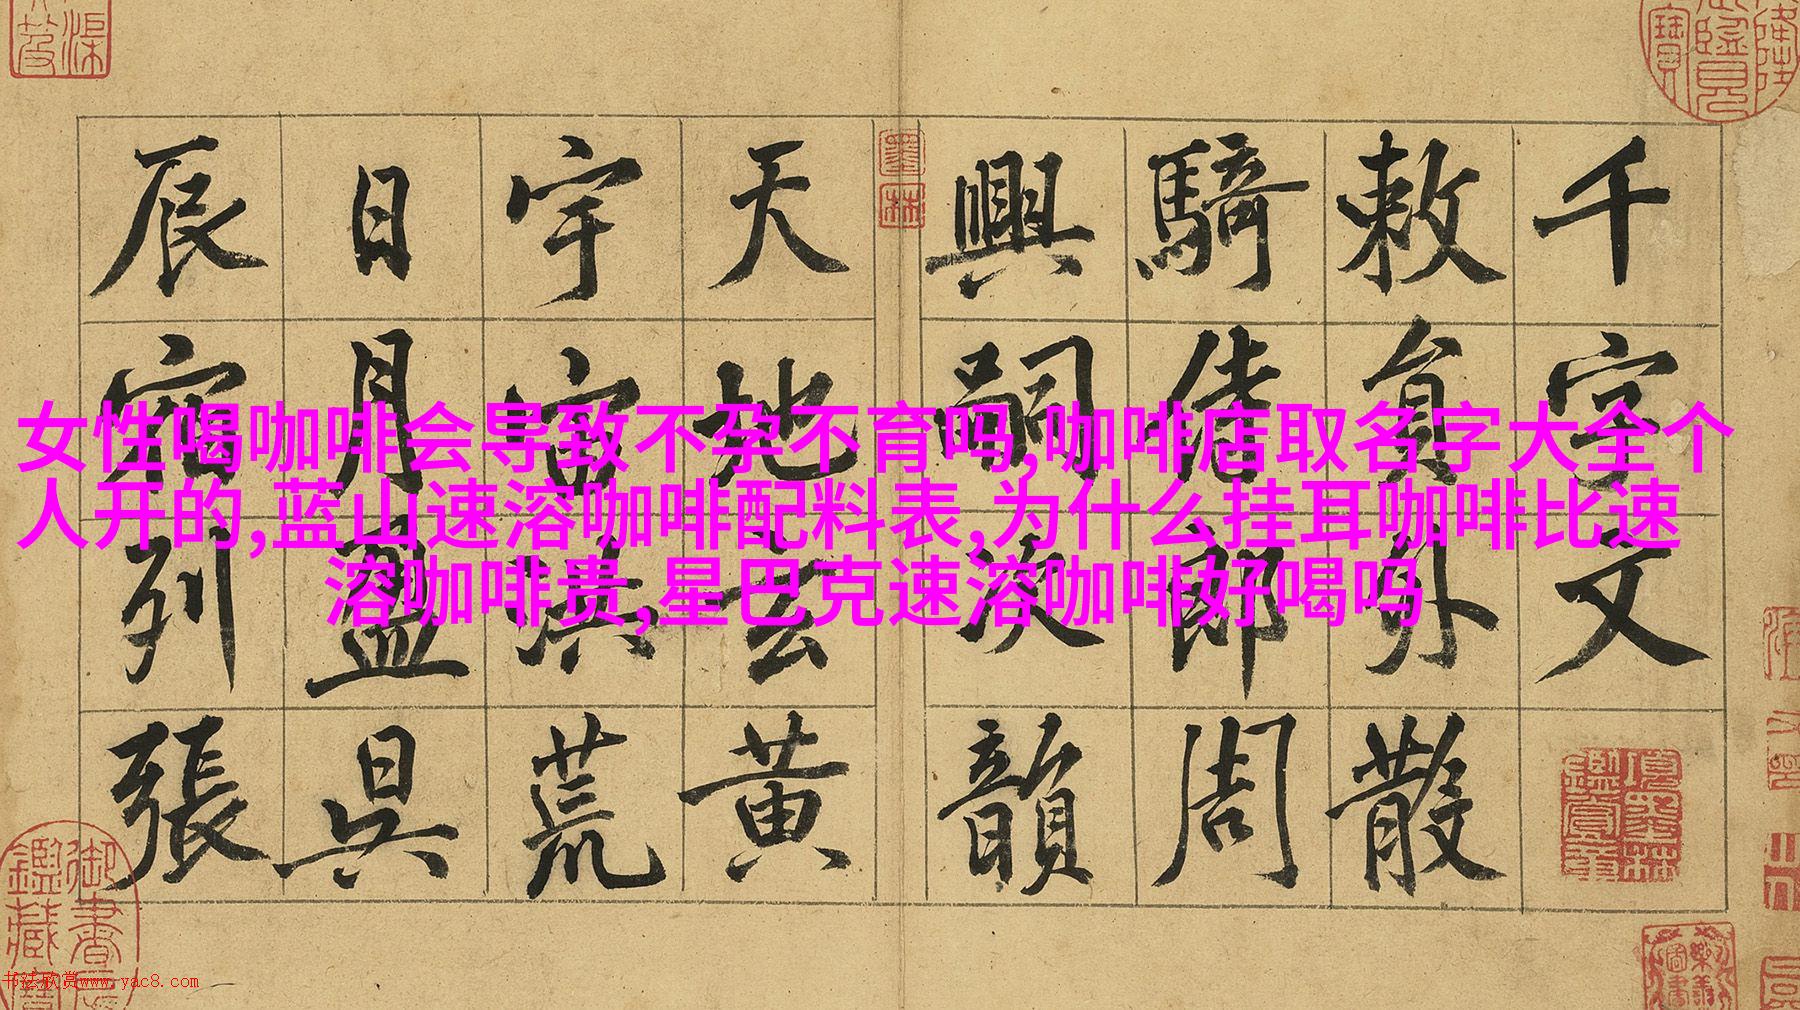 千字文
敕員外散
騎侍郎周
興嗣次韻
天地玄黄
宇宙洪荒
日月盈昃
辰宿列張
女性喝咖啡会导致不孕不育吗,咖啡店取名字大全个
人开的,蓝山速溶咖啡配料表,为什么挂耳咖啡比速
溶咖啡贵,星巴克速溶咖啡好喝吗
墨林
項墨林
鑑賞章
书法欣赏www.yac8.com